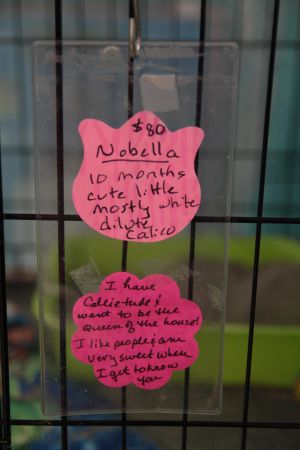 $80
Nobella
10 months
cute little
mostly white
dilute
Calico
I have
Callietude &
want to be the
Queen of the house!
I like people & am
very sweet when
I get to know
you